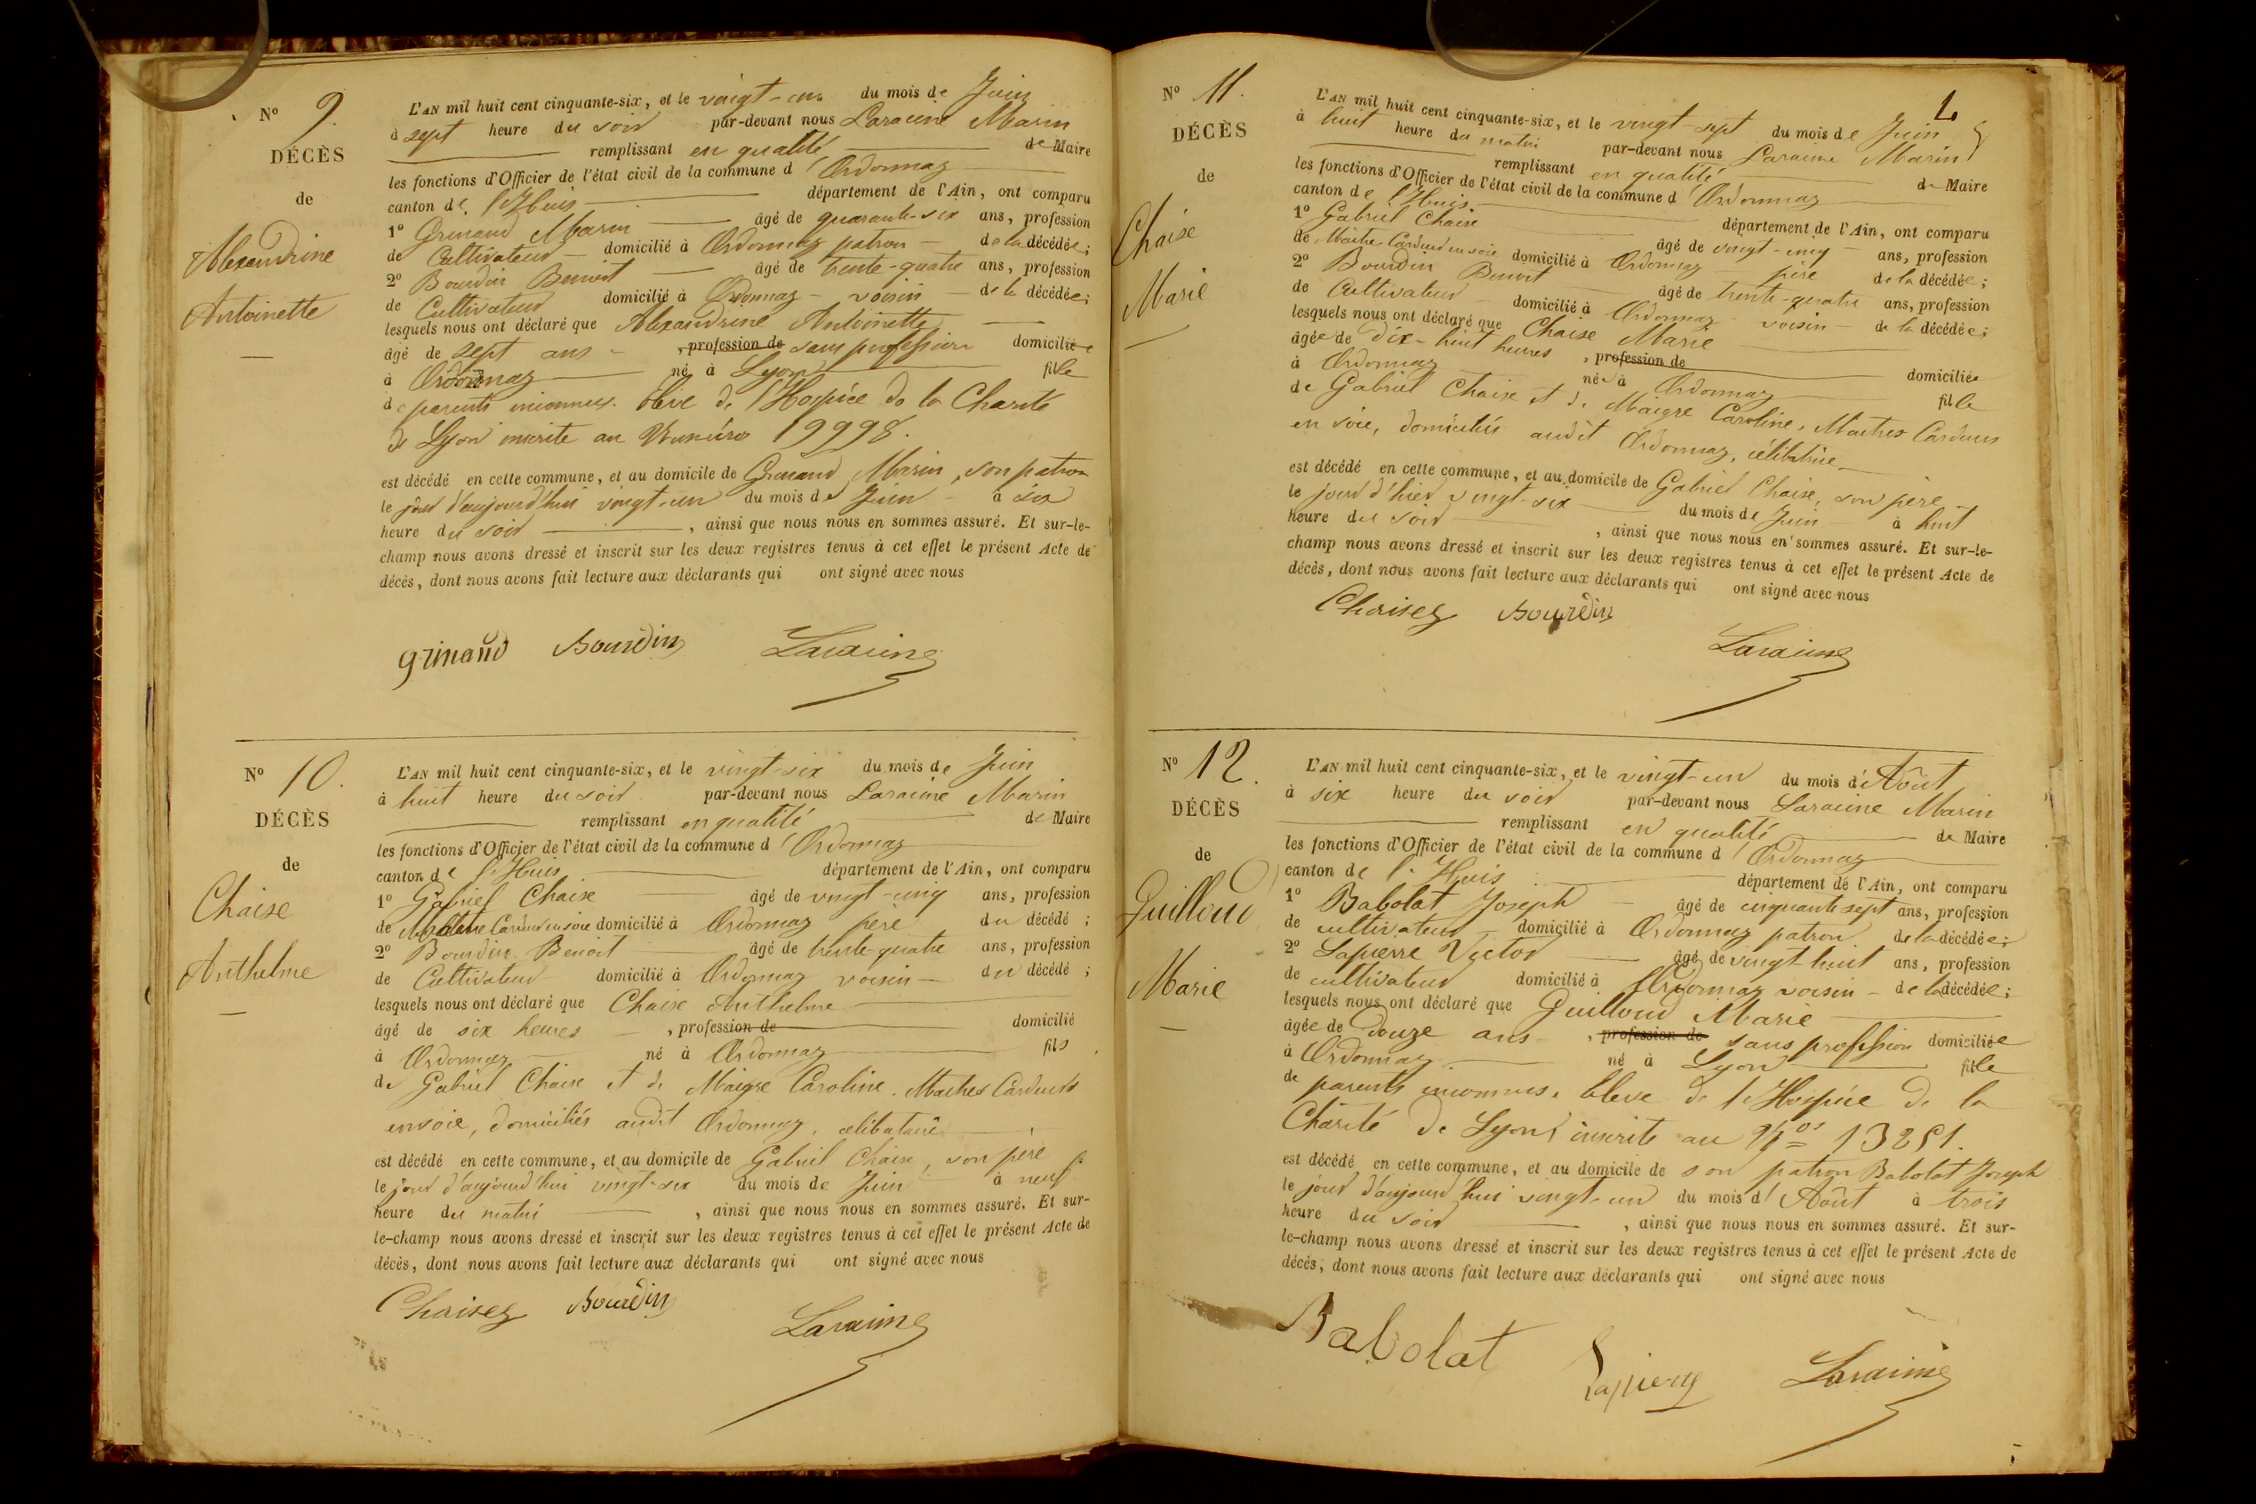 N° 9.
DÉCÈS
de
Alexandrine
Antoinette
L'AN mil huit cent cinquante-six, et le vingt-un du mois de Juin
à sept heure du soir par-devant nous Laraine Marin
remplissant en qualité de Maire
les fonctions d'Officier de l'état civil de la commune d'Ordonnaz
canton de l'Huis département de l'Ain, ont comparu
1° Grinand Marin âgé de quarante-six ans, profession
de Cultivateur domicilié à Ordonnaz patron de la décédée;
2° Bourdin Benoit âgé de trente-quatre ans, profession
de Cultivateur domicilié à Ordonnaz - voisin - de la décédée;
lesquels nous ont déclaré que Alexandrine Antoinette
âgé de sept ans - , profession de sans profession domiciliée
à Ordonnaz né à Lyon fille
de parents inconnus. Elève de l'Hospice de la Charité
de Lyon inscrite au Numéro 19998.
est décédé en cette commune, et au domicile de Grinand Marin, son patron
le jour d'aujourd'hui vingt-un du mois de Juin - à six
heure du soir , ainsi que nous nous en sommes assuré. Et sur-le-
champ nous avons dressé et inscrit sur les deux registres tenus à cet effet le présent Acte de
décès, dont nous avons fait lecture aux déclarants qui ont signé avec nous
grinand Bourdin Laraine
N° 10.
DÉCÈS
de
Chaise
Anthelme
L'AN mil huit cent cinquante-six, et le vingt-six du mois de Juin
à huit heure du soir par-devant nous Laraine Marin
remplissant en qualité de Maire
les fonctions d'Officier de l'état civil de la commune d'Ordonnaz
canton de l'Huis département de l'Ain, ont comparu
1° Gabriel Chaise âgé de vingt-cinq ans, profession
de Maitre Cardeur en soie domicilié à Ordonnaz père du décédé ;
2° Bourdin Benoit âgé de trente-quatre ans, profession
de Cultivateur domicilié à Ordonnaz voisin - du décédé ;
lesquels nous ont déclaré que Chaise Anthelme
âgé de six heures - , profession de domicilié
à Ordonnaz né à Ordonnaz fils
de Gabriel Chaise et de Maigre Caroline. Maitres Cardeurs
en soie, domiciliés audit Ordonnaz, célibataire
est décédé en cette commune, et au domicile de Gabriel Chaise, son père
le jour d'aujourd'hui vingt-six du mois de Juin à neuf
heure du matin , ainsi que nous nous en sommes assuré. Et sur-
le-champ nous avons dressé et inscrit sur les deux registres tenus à cet effet le présent Acte de
décès, dont nous avons fait lecture aux déclarants qui ont signé avec nous
Chaisez Bourdin
Laraine
N° 11.
DÉCÈS
de
Chaise
Marie
L'AN mil huit cent cinquante-six, et le vingt-sept du mois de Juin
à huit heure du matin par-devant nous Laraine Marin
remplissant en qualité de Maire
les fonctions d'Officier de l'état civil de la commune d'Ordonnaz
canton de l'Huis département de l'Ain, ont comparu
1° Gabriel Chaise âgé de vingt-cinq ans, profession
de Maitre Cardeur en soie domicilié à Ordonnaz père de la décédée;
2° Bourdin Benoit âgé de trente-quatre ans, profession
de Cultivateur domicilié à Ordonnaz voisin - de la décédée;
lesquels nous ont déclaré que Chaise Marie
âgée de dix-huit heures , profession de domiciliée
à Ordonnaz née à Ordonnaz fille
de Gabriel Chaise et de Maigre Caroline, Maitres Cardeurs
en soie, domiciliés audit Ordonnaz, célibatrice
est décédé en cette commune, et au domicile de Gabriel Chaise, son père
le jour d'hier vingt-six du mois de Juin - à huit
heure du soir , ainsi que nous nous en sommes assuré. Et sur-le-
champ nous avons dressé et inscrit sur les deux registres tenus à cet effet le présent Acte de
décès, dont nous avons fait lecture aux déclarants qui ont signé avec nous
Chaisez Bourdin
Laraine
N° 12.
DÉCÈS
de
Guilloud
Marie
L'AN mil huit cent cinquante-six, et le vingt-un du mois d'Août
à six heure du soir par-devant nous Laraine Marin
remplissant en qualité de Maire
les fonctions d'Officier de l'état civil de la commune d'Ordonnaz
canton de l'Huis département de l'Ain, ont comparu
1° Babolat Joseph - âgé de cinquante sept ans, profession
de cultivateur domicilié à Ordonnaz patron de la décédée;
2° Lapierre Victor âgé de vingt-huit ans, profession
de cultivateur domicilié à Ordonnaz voisin - de la décédée;
lesquels nous ont déclaré que Guilloud Marie
âgée de douze ans , profession de sans profession domiciliée
à Ordonnaz né à Lyon fille
de parents inconnus. Elève de l'Hospice de la
Charité de Lyon inscrite au Nos 13251.
est décédé en cette commune, et au domicile de son patron Babolat Joseph
le jour d'aujourd'hui vingt-un du mois d'Août à trois
heure du soir , ainsi que nous nous en sommes assuré. Et sur-
le-champ nous avons dressé et inscrit sur les deux registres tenus à cet effet le présent Acte de
décès, dont nous avons fait lecture aux déclarants qui ont signé avec nous
Babolat Lapierre Laraine